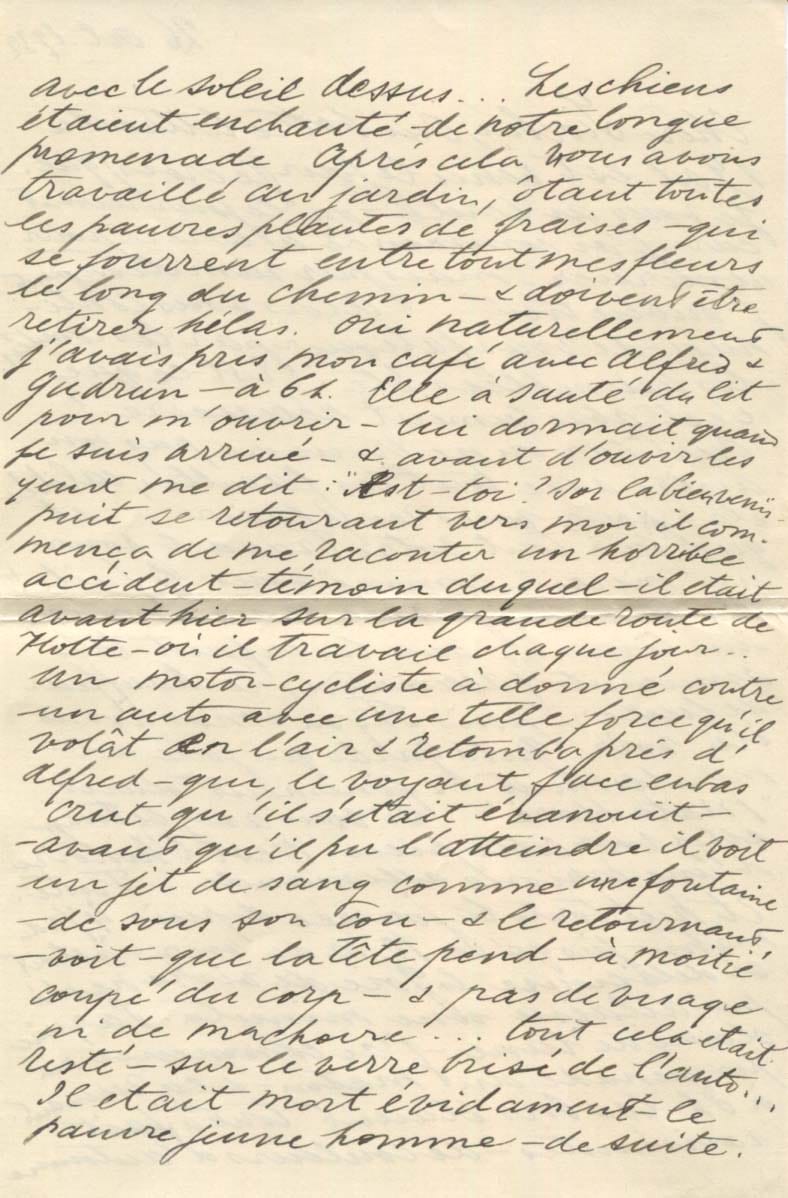 avec le soleil dessus... Les chiens
étaient enchanté de notre longue
promenade Après cela nous avons
travaillé au jardin, ôtant toutes
les pauvres plantes de fraises - qui
se fourrent entre tout mes fleurs
le long du chemin - & doivent être
retirer hélas. Oui naturellement
j'avais pris mon café avec Alfred &
Gudrun - à 6 h. Elle à sauté du lit
pour m'ouvrir - lui dormait quand
je suis arrivé - & avant d'ouvir les
yeux me dit : "Est-toi? Sor la bienvenü-
puit se retournant vers moi il com-
mença de me raconter un horrible
accident - témoin duquel - il etait
avant hier sur la grande route de
Holte - où il travail chaque jour..
un motor-cycliste à donné contre
un auto avec une telle force qu'il
volât en l'air & retomba près d'
Alfred - qui, le voyant face en bas
crut qu'il s'etait évanouit -
- avant qu'il pu l'atteindre il voit
un jet de sang comme une fontaine
- de sous son cou - & le retournant
- voit - que la tête pend - à moitié
coupé du corp - & pas de visage
ni de machoire... tout cela etait
resté - sur le verre brisé de l'auto...
Il etait mort évidament - le
pauvre jeune homme - de suite.